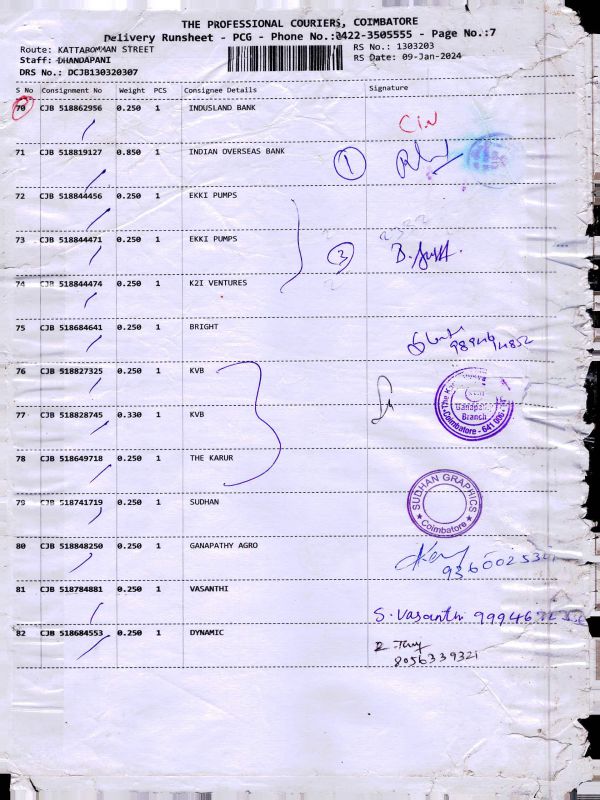 THE PROFESSIONAL COURIERS, COIMBATORE
Delivery Runsheet - PCG - Phone No.:0422-3505555 - Page No.:7
Route: KATTABOMMAN STREET
RS No.: 1303203
Staff: DHANDAPANI
RS Date: 09-Jan-2024
DRS No.: DCJB130320307
S No Consignment No Weight PCS Consignee Details Signature
70 CJB 518862956 0.250 1 INDUSLAND BANK
71 CJB 518819127 0.850 1 INDIAN OVERSEAS BANK 1
72 CJB 518844456 0.250 1 EKKI PUMPS
73 CJB 518844471 0.250 1 EKKI PUMPS 3
74 CJB 518844474 0.250 1 K2I VENTURES
75 CJB 518684641 0.250 1 BRIGHT
76 CJB 518827325 0.250 1 KVB
77 CJB 518828745 0.330 1 KVB
Ganapathy
Branch
Coimbatore - 641
78 CJB 518649718 0.250 1 THE KARUR
79 CJB 518741719 0.250 1 SUDHAN
SUDHAN GRAPHICS
Coimbatore
80 CJB 518848250 0.250 1 GANAPATHY AGRO
81 CJB 518784881 0.250 1 VASANTHI
S. Vasanthi
82 CJB 518684553 0.250 1 DYNAMIC
8056339321